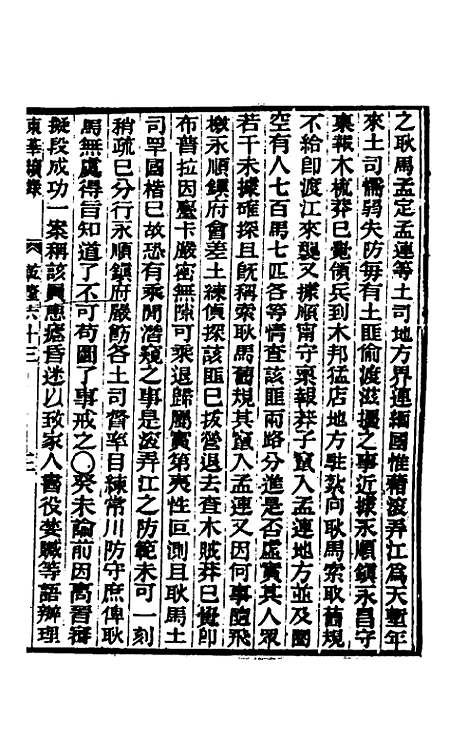 之耿馬孟定孟連等土司地方界連緬國惟藉滾弄江爲天塹年
來土司懦弱失防每有土匪偷渡滋擾之事近據永順鎮永昌守
稟報木梳莽已覺領兵到木邦猛店地方駐紮向耿馬索取舊規
不給卽渡江來襲又據順甯守稟報莽子竄入孟連地方並及圈
空有人七百馬七匹各等情查該匪兩路分進是否虛實其人眾
若干未據確探且旣稱索耿馬舊規其竄入孟連又因何事隨飛
檄永順鎮府會差土練偵探該匪已拔營退去查木賊莽已覺卽
布普拉因壓卡嚴密無隙可乘退歸屬實第夷性叵測且耿馬土
司罕國楷已故恐有乘間潛窺之事是滾弄江之防範未可一刻
稍疏已分行永順鎮府嚴飭各土司督率目練常川防守庶俾耿
馬無虞得旨知道了不可苟圖了事戒之○癸未諭前因高晉審
擬段成功一案稱該員瘧昏迷以致家人書役婪贓等語辦理
東華續錄 乾隆六十三 三